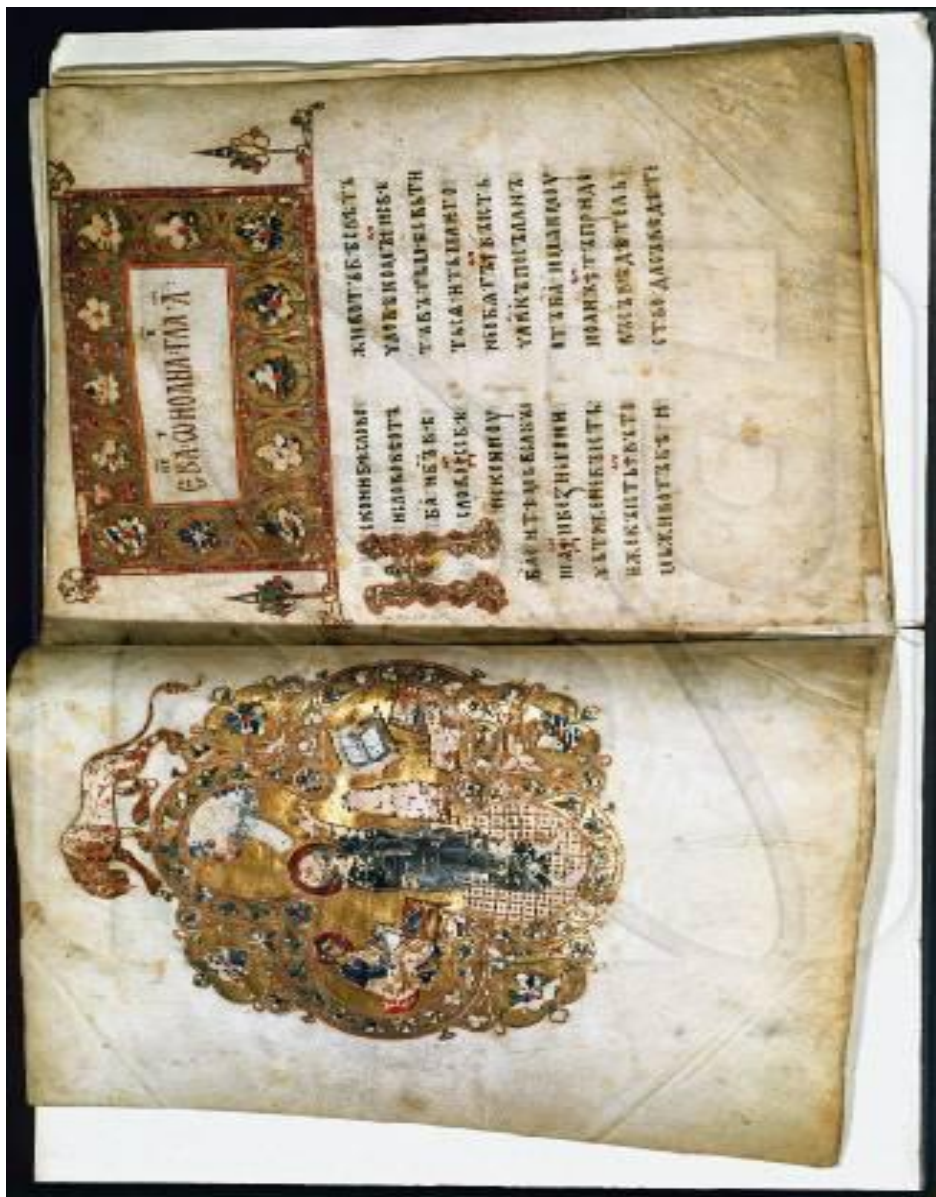 ЕВА Ѿ ИОАНА ГЛА А
ИСКОНИ БѢ СЛОВО
И СЛОВО БѢ ОТЪ
БА И БЪ БѢ
СЛОВО СЕ БѢ
ИСКОНИ ОУ
БА И ТѢМЬ ВЬСА БЫ
ША И БЕЖНЕГО НИ
ЧЬТОЖЕ НЕ БЫСТЬ
ЖИВОТЪ БѢ СВѢТЪ
ЧЛОВѢКОМЪ И СВѢ
ТЪ ВЪ ТЬМѢ СВЬТИ
ТЬСѦ И ТЬМА ѤГО
НЕ ОБѦТЪ БЫСТЬ
ЧЛВКЪ ПОСЪЛАНЪ
ОТЪ БА ИМѦ ѤМОУ
ИОАНЪ ТЪ ПРИДЕ
ВЪ СЪВѢДѢТЕЛЬ
СТВО ДА СЪВѢДѢТЕ